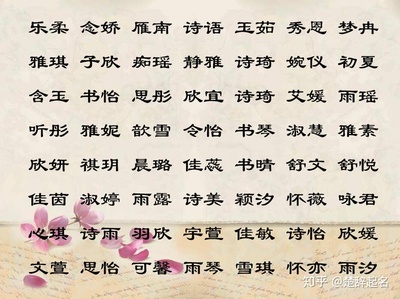 乐柔 念娇 雁南 诗语 玉茹 秀恩 梦冉
雅琪 子欣 痴瑶 静雅 诗琦 婉仪 初夏
含玉 书怡 思彤 欣宜 诗琦 艾媛 雨瑶
听彤 雅妮 歆雪 令怡 书琴 淑慧 雅素
欣妍 祺玥 晨璐 佳蕊 书晴 舒文 舒悦
佳茵 淑婷 雨露 诗美 颖汐 怀薇 咏君
心琪 诗雨 羽欣 字萱 佳敏 诗怡 欣媛
文萱 思怡 可馨 雨琴 雪琪 怀亦 雨汐
知乎 @楚辞起名